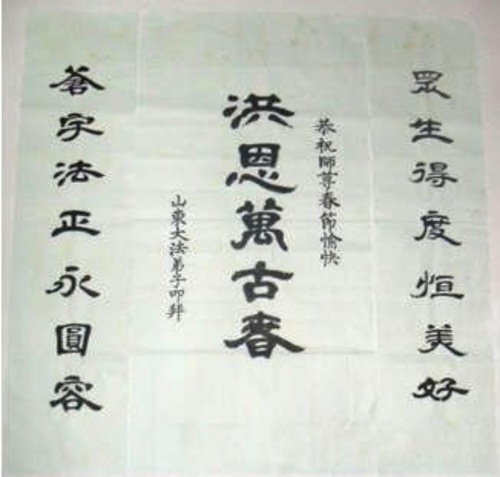 眾生得度恒美好
恭祝師尊春節愉快
洪恩萬古春
山東大法弟子叩拜
蒼宇法正永圓容